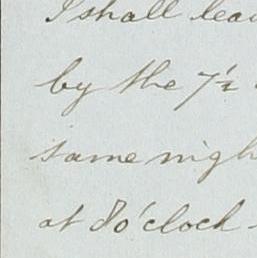 I shall leav
by the 7½
same nigh
at 8 o'clock -